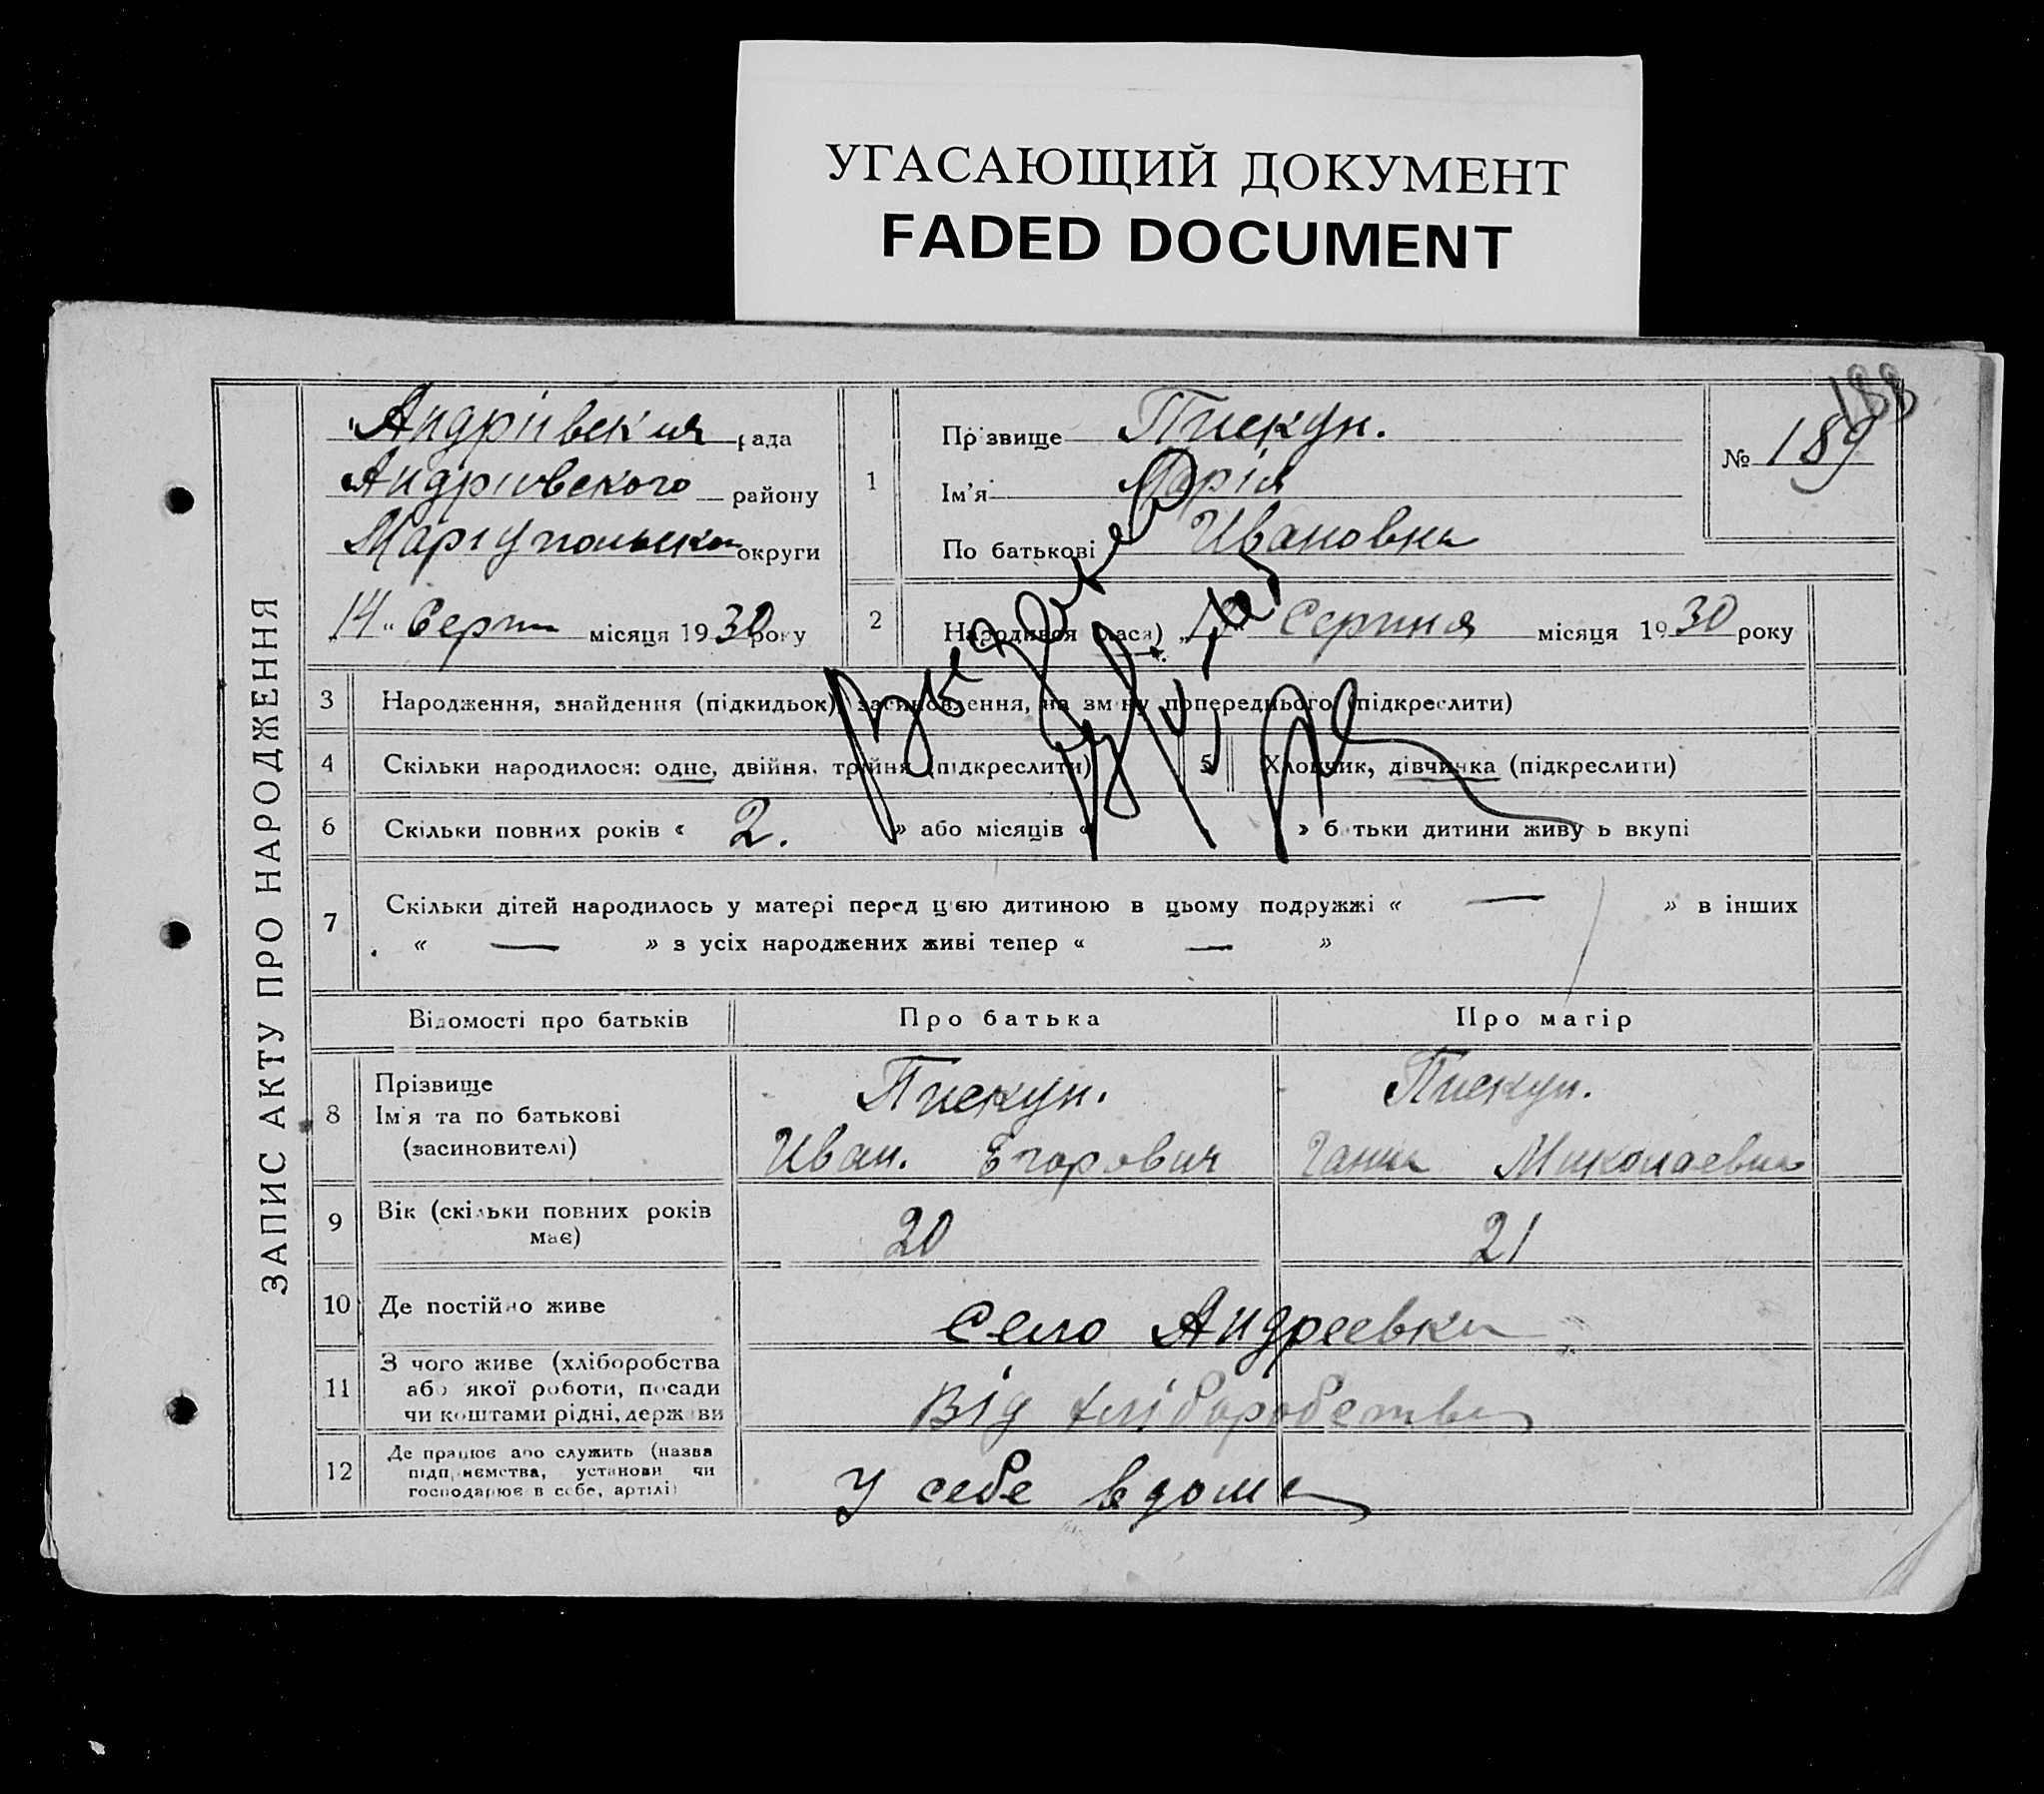 УГАСАЮЩИЙ ДОКУМЕНТ
FADED DOCUMENT
188
ЗАПИС АКТУ ПРО НАРОДЖЕННЯ
Андріївська рада
Андріївського району
Маріупольська округи
14 " Серпня місяця 1930 року
1
Прізвище Пискун.
Ім'я Марія
По батькові Ивановна
№ 189
2 Народився (лася) " Серпня місяця 1930 року
3 Народження, знайдення (підкидьок), засиновлення, на зміну попереднього (підкреслити)
4 Скільки народилося: одне, двійня, трійня (підкреслити) 5 Хлопчик, дівчинка (підкреслити)
6 Скільки повних років « 2. » або місяців « » батьки дитини живуть вкупі
7 Скільки дітей народилось у матері перед цією дитиною в цьому подружжі « — » в інших
« — » з усіх народжених живі тепер « — »
Відомості про батьків Про батька Про матір
8 Прізвище Пискун. Пискун.
Ім'я та по батькові
(засиновителі) Иван. Егорович Ганна Миколаевна
9 Вік (скільки повних років має) 20 21
10 Де постійно живе село Андреевка
11 З чого живе (хліборобства
або якої роботи, посади
чи коштами рідні, держави Від хліборобства
12 Де працює або служить (назва
підприємства, установи чи
господарює в себе, артілі) У себе вдома